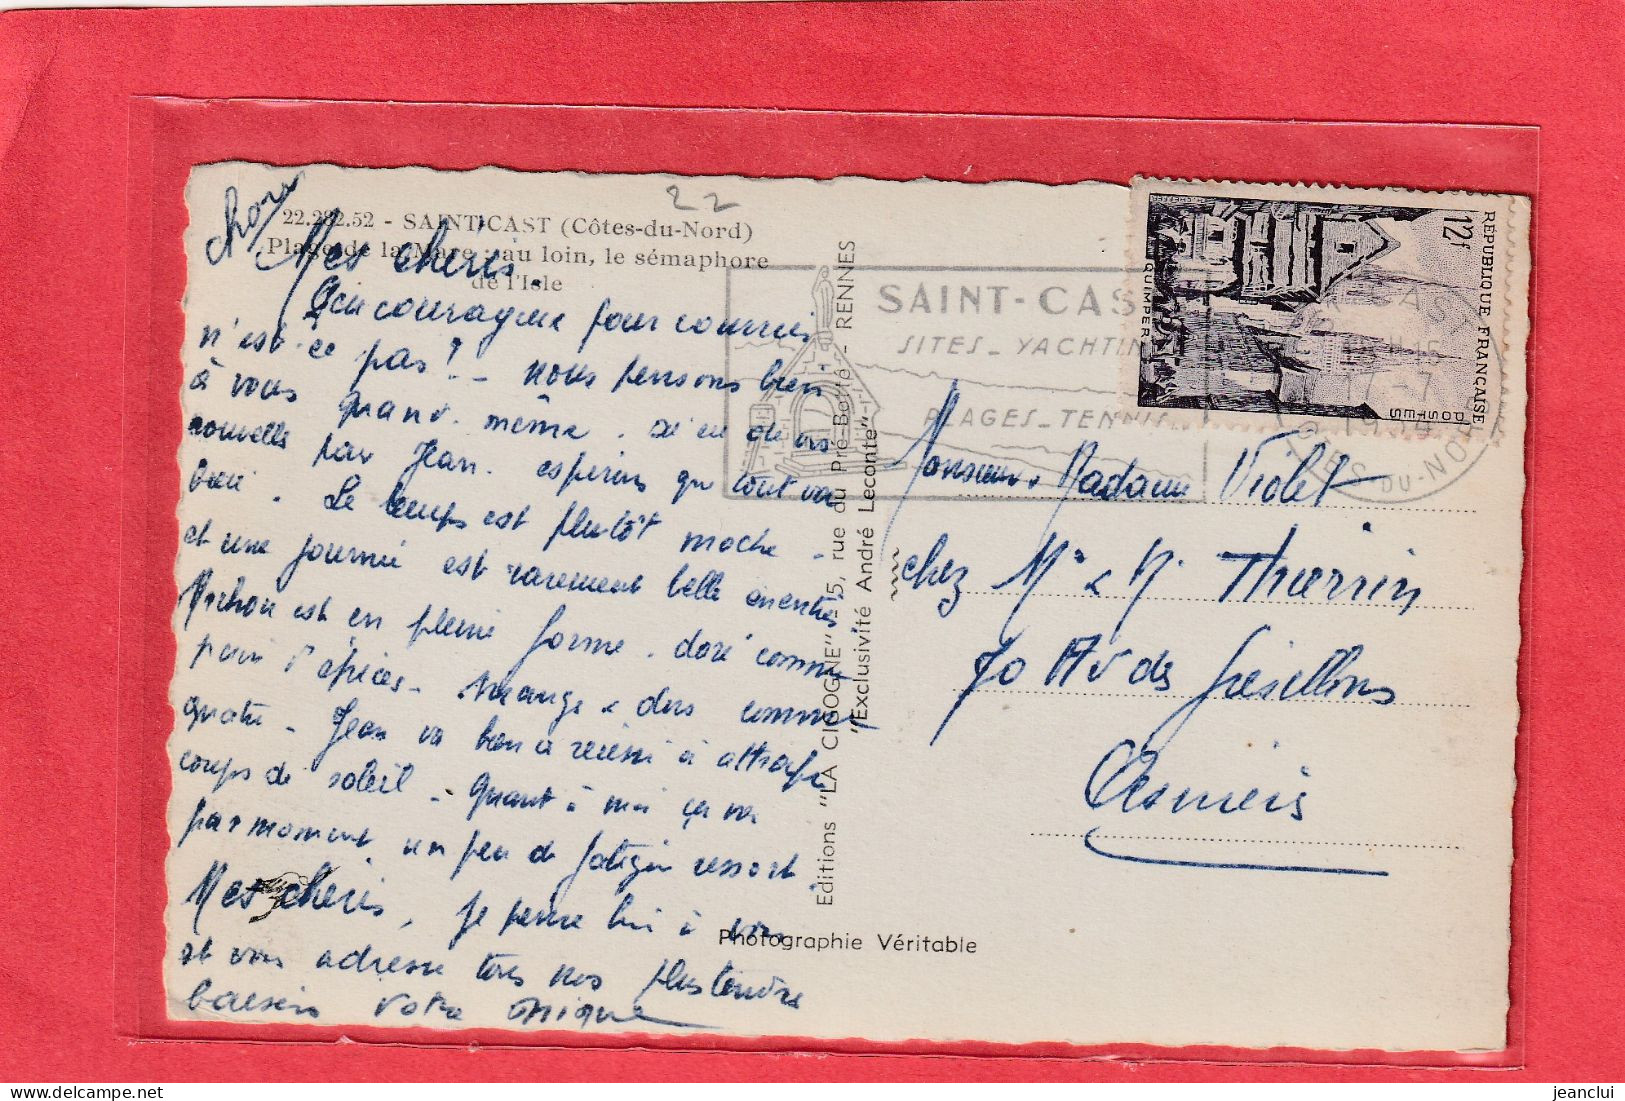 22
22.282.52 - SAINT-CAST (Côtes-du-Nord)
Plage de la Mare : au loin, le sémaphore
de l'Isle
Mes chéris.
pour courrier
n'est-ce pas ? - nous pensons bien
à vous quand même. ai eu de vos
nouvelles par Jean. espérons que tout va
bien. Le temps est plutôt moche -
et une journée est rarement belle entière
est en pleine forme. doré comme
pain d'épices - mange & dors comme
quatre - Jean va bien a réussi à attraper
coups de soleil - Quant à moi ça va
par moment un peu de fatigue
Mes chéris, je pense bien à vous
et vous adresse tous nos plus tendres
baisers Votre Monique
Editions "LA CIGOGNE" 15, rue du Pré-Botté - RENNES
"Exclusivité André Leconte"
Photographie Véritable
SAINT-CAS
SITES - YACHTIN
PLAGES - TENNIS
RÉPUBLIQUE FRANÇAISE
12f
POSTES
QUIMPER
17 - 7
CÔTES DU-NORD
Monsieur & Madame Violet
chez Mr & M. Thierrin
70 Av des Grésillons
Asnieres
jeanclui